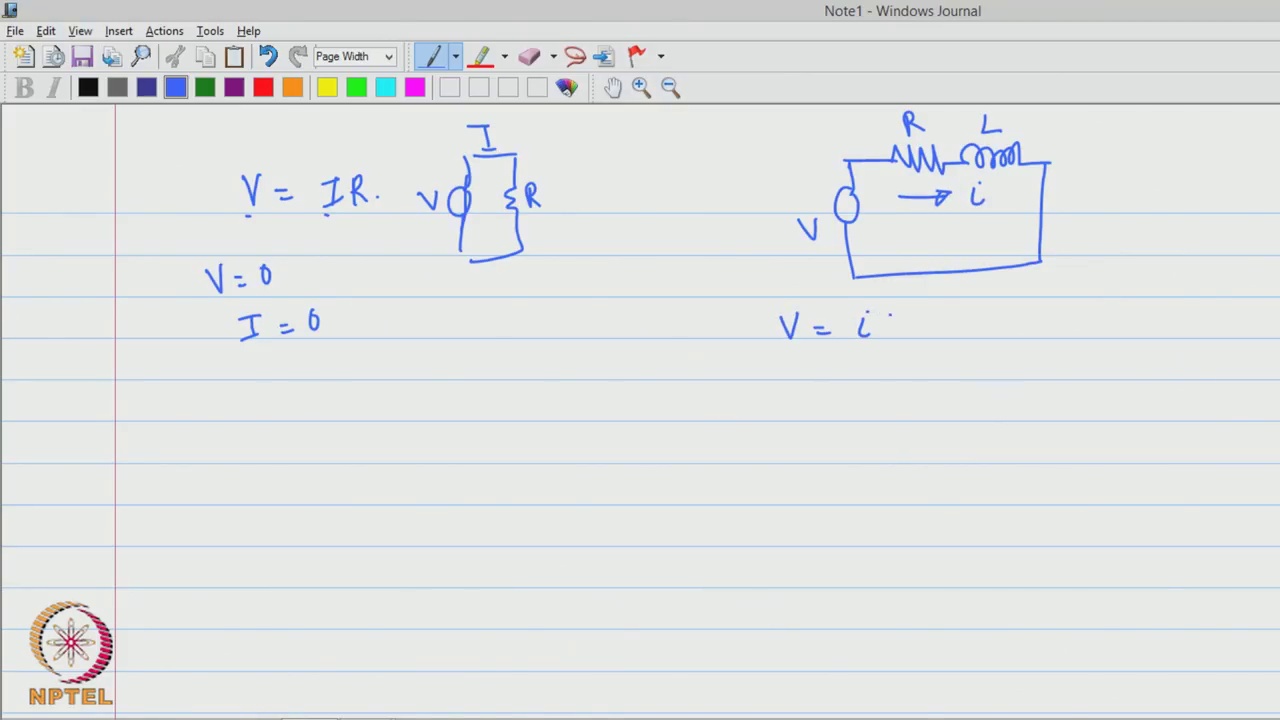 Note1 - Windows Journal
File Edit View Insert Actions Tools Help
Page Width
B I
I
V = IR.
V
R
V = 0
I = 0
R L
i
V
V = i
NPTEL